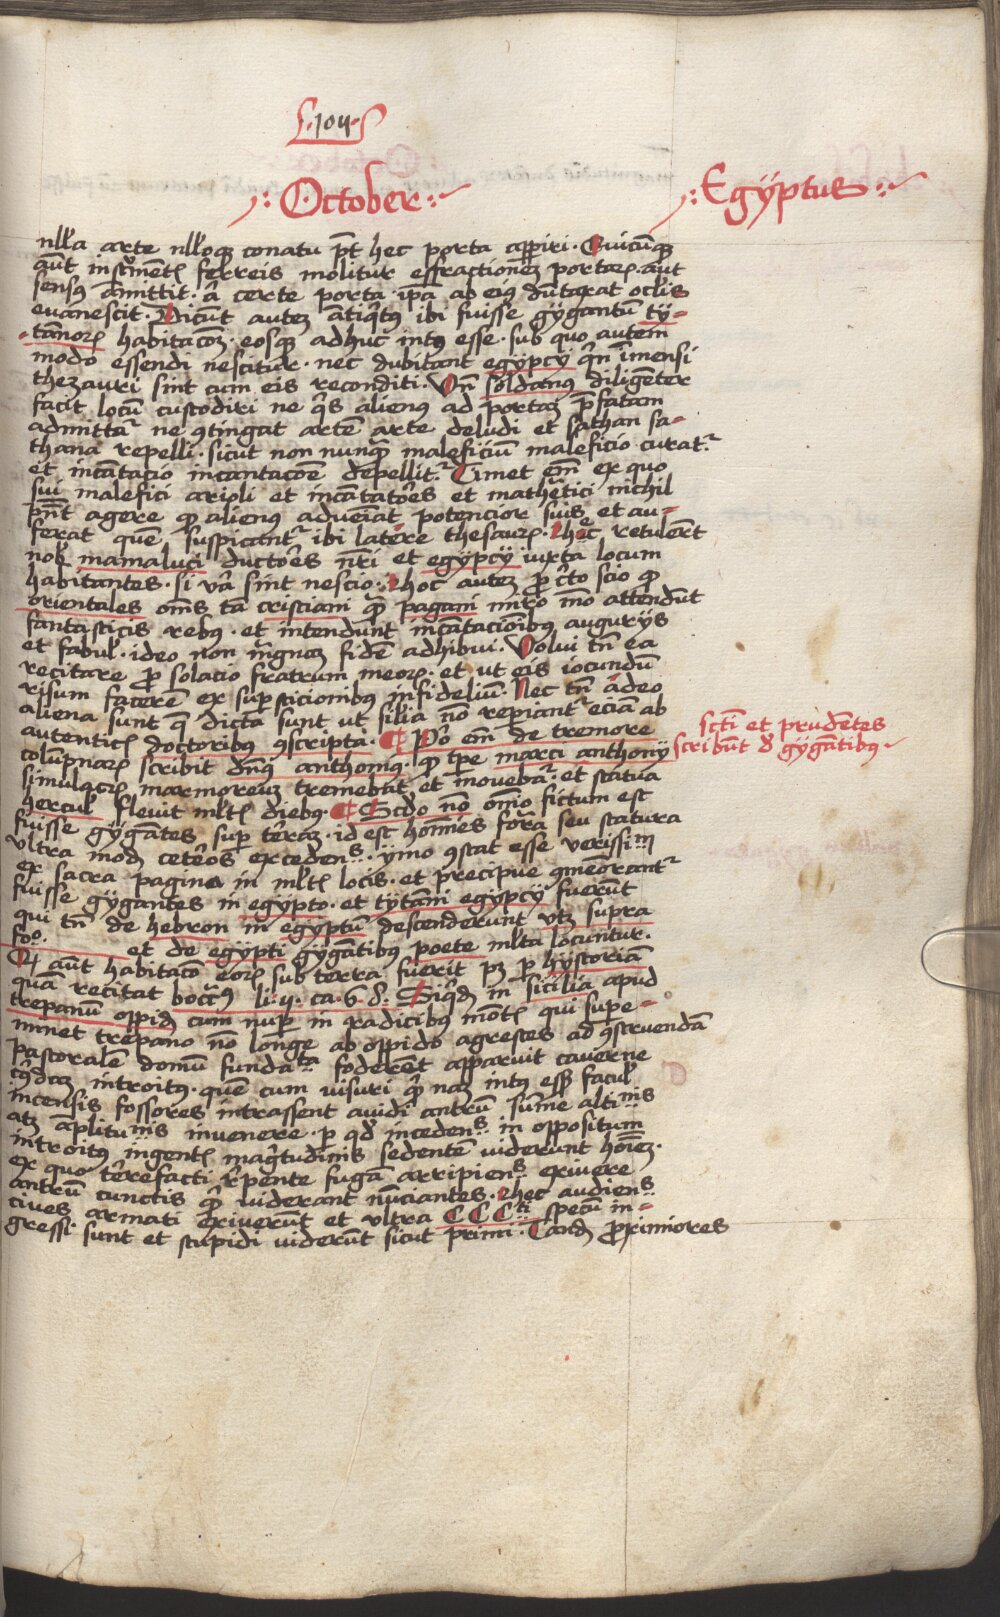 ·104·
·:October:·
·:Egÿptus:·
nll'a arte nll'oqꝫ conatu pt̄ hec porta apperiri · Quicūqꝫ
aūt instrumētꝭ ferreis molitur effractionem portaꝝ · aut
sensꝰ amittit · a certe porta · ip̄a ab eiꝰ dūtaxat oclis
euanescit · Dicūt autem ātiqitꝰ ibi fuisse gÿgantūm tÿ-
tānoꝝ habitacōꝫ · eosqꝫ adhuc intꝰ esse · sub quo autem
modo essendi nescitur · nec dubitant egÿpcÿ qn̄ imensi
thezauri sint cum eis reconditi · Vn̄ soldanus diligēter
facit locū custodiri ne qis alienꝰ ad portaꝫ p̄fatam
admitta͛ ne ꝯtingat artē arte deludi et sathan sa-
thana repelli · sicut non nunqꝫ maleficiū maleficio curat͛
et incātacio incantacōe depellit͛ · Timet em̄ ex quo
sui malefici arioli et incātatōres et mathētici nichil
pn̄t agere qꝫ alienꝰ adueīat potencior suis et au-
ferat que suspicant͛ ibi latere thesauꝝ · Hec retulerūt
nob̄ mamaluci ductōres nr̄i et egÿpcÿ iuxta locum
habitantes · si v͛a sint nescio · hoc autem p̄ c͛to scio qꝫ
orientales om̄s tā cristiani qꝫ pagani miro mō attendūt
fantasticis rebꝰ · et intendunt incātacioībus augurÿs
et fabul̄ · ideo non māgnaꝫ fidē adhibui · Volui tn̄ ea
recitare p̄ solacio fratrum meoꝝ · et ut eis iocundū
risum facerē ex supsticionibꝰ infideliū · Nec tn̄ adeo
aliena sunt q̄ dicta sunt ut sil̄ia nō repiant͛ eciā ab
autenticꝭ doctoribꝰ ꝯscripta · Pō em̄ de tremore
colūpnaꝝ scribit dn̄s anthoniꝰ · qꝫ tpe marci anthonÿ
simulacꝝ marmoreuꝫ tremebat et mouebā͛ · et statua
hercul̄ fleuit ml̄tꝭ diebꝰ · Scdo nō om̄io fictum est
fuisse gÿgātes sup terraꝫ · id est hoīnes forma seu statura
vltra modꝫ ceteros excedens · ÿmo ꝯstat esse verissim
ex sacra pagina in ml̄tꝭ locis · et precipue ꝯmēorant͛
fuisse gÿgantes in egÿpto · et tÿtāni egÿpcÿ fuerūt
qui tn̄ de hebron in egÿptū descenderunt vtꝫ supra
fo · et de egÿpti gÿgātibꝰ poete ml̄ta locuntur ·
Qꝫ aūt habitacō eoꝝ sub terra fuerit pꝫ p̄ hÿstoriā
quā recitat bocc̄iꝰ li · 4 · ca · 68 · Siqidꝫ in sicilia apud
trepanū oppidꝫ cum nup in radicibꝰ mōtꝭ qui supe-
minet trepano nō longe ab oppido agrestes ad ꝯstruendā
pastoralē domū fundata foderēt apparuit cauerne
cuiꝰdaꝫ introitꝰ · quē cum visuri qd̄ naꝫ intꝰ essꝫ facul̄
incensis fossores intrassent auidi antrū sūme altinis
atqꝫ āplitunis inuenere · p qd̄ incedens in oppositum
introitꝰ ingentꝭ magitudinis sedentē viderunt hoīem ·
ex quo terrefacti r̄pente fugā arripiens exiuere
antrū cunctis qd̄ viderant nūciantes · Hec audiens
ciues armati exiuerūt et vltra CCCti specū in-
gressi sunt et stupidi viderūt sicut primi · Tandꝫ proximiores
scti et prudētes
scribūt d̄ gÿgātibꝰ ·